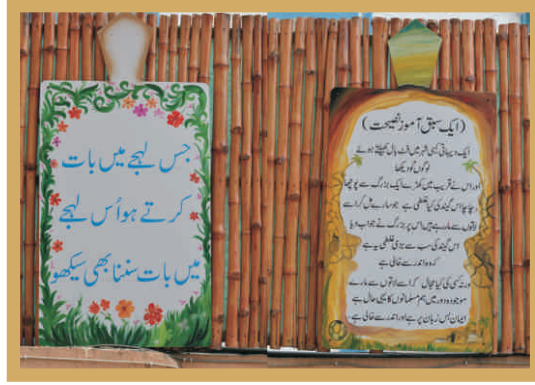 جس لہجے میں بات
کرتے ہو اُس لہجے
میں بات سننا بھی سیکھو
(ایک سبق آموز نصیحت)
ایک دیہاتی کسی شہر میں فٹ بال کھیلتے ہوئے
لوگوں کو دیکھا
اور اس نے قریب میں کھڑے ایک بزرگ سے پوچھا
چاچا اس گیند کی کیا غلطی ہے جو سارے مل کر اسے
لاتوں سے مار رہے ہیں اس پر بزرگ نے جواب دیا
اس گیند کی سب سے بڑی غلطی یہ ہے
کہ وہ اندر سے خالی ہے
ورنہ کسی کی کیا مجال کہ اسے لاتوں سے مارے
موجودہ دور میں ہم مسلمانوں کا یہی حال ہے
ایمان بس زبان پر ہے اور اندر سے خالی ہے